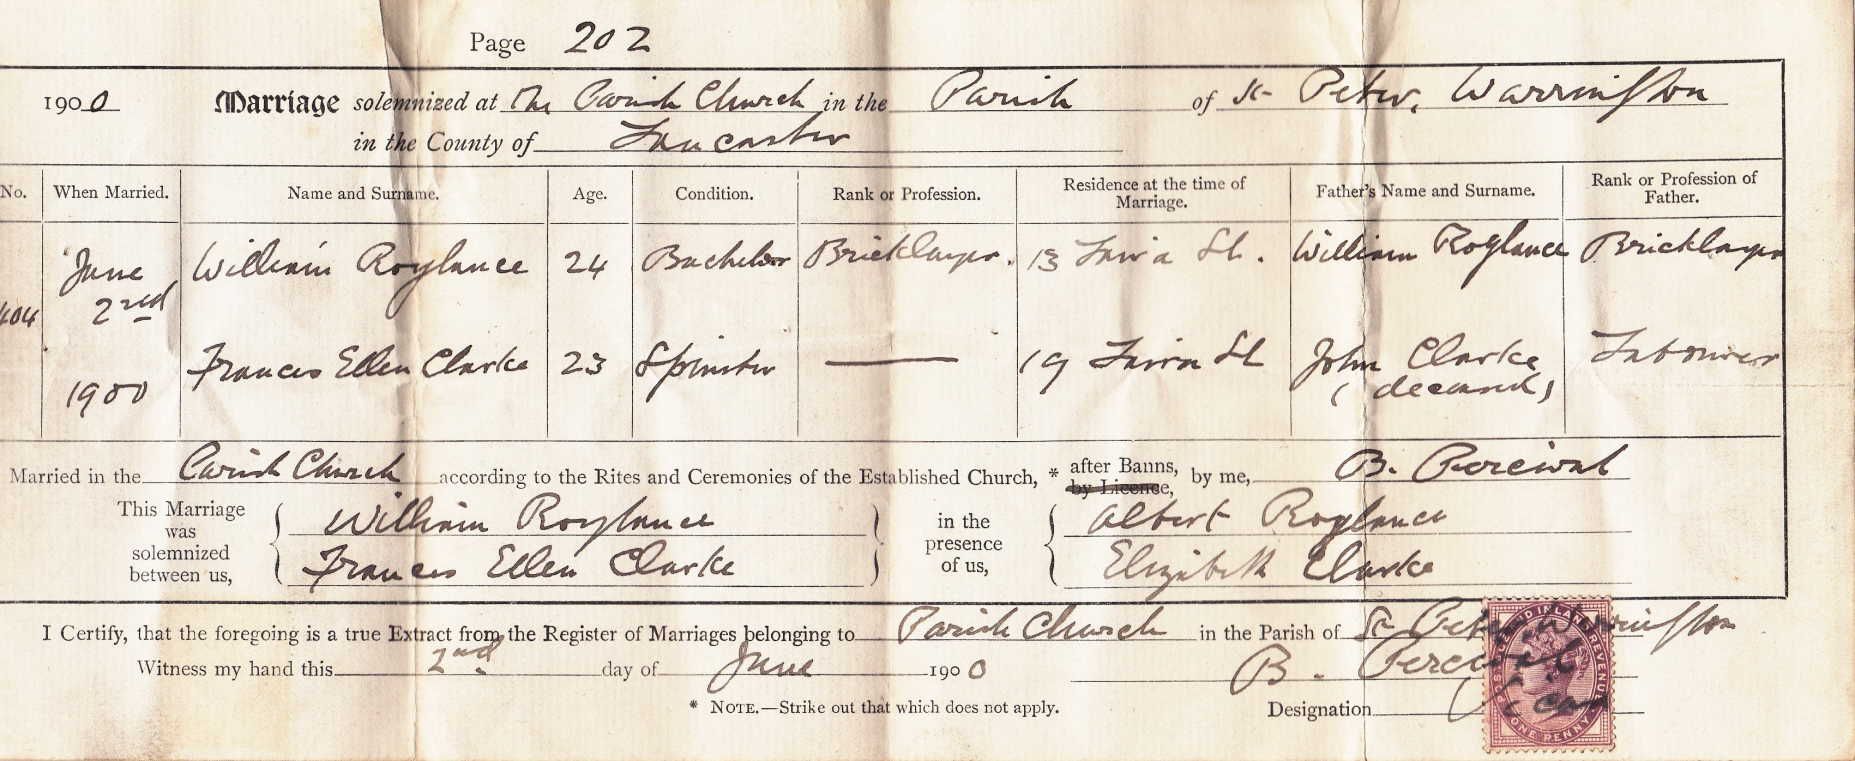 Page 202
1900 Marriage solemnized at The Parish Church in the Parish of St Peter, Warrington
in the County of Lancaster
No. When Married. Name and Surname. Age. Condition. Rank or Profession. Residence at the time of Marriage. Father's Name and Surname. Rank or Profession of Father.
404 June 2nd 1900 William Roylance 24 Bachelor Bricklayer. 13 St. William Roylance Bricklayer
Frances Ellen Clarke 23 Spinster — 19 St John Clarke (deceased) Labourer
Married in the Parish Church according to the Rites and Ceremonies of the Established Church, * after Banns, by Licence, by me, B. Percival
This Marriage was solemnized between us, William Roylance in the presence of us, Albert Roylance
Frances Ellen Clarke Elizabeth Clarke
I Certify, that the foregoing is a true Extract from the Register of Marriages belonging to Parish Church in the Parish of St Peter Warrington
Witness my hand this 2nd day of June 1900 B. Percival
* NOTE.—Strike out that which does not apply. Designation Vicar
POSTAGE AND INLAND REVENUE
ONE PENNY